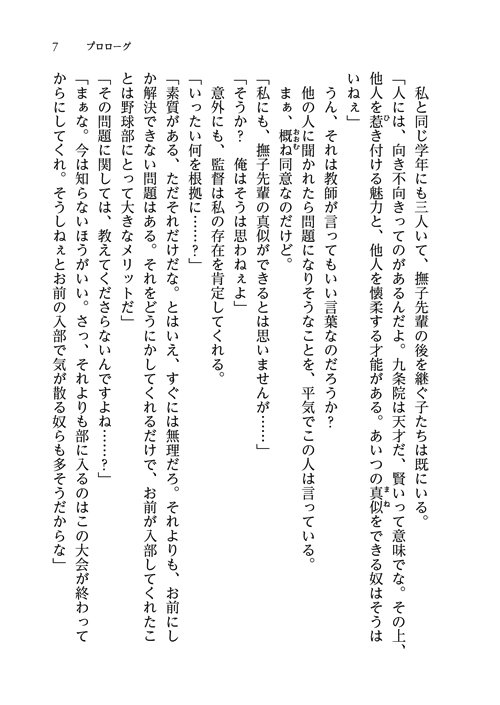 7　プロローグ
私と同じ学年にも三人いて、撫子先輩の後を継ぐ子たちは既にいる。
「人には、向き不向きってのがあるんだよ。九条院は天才だ、賢いって意味でな。その上、
他人を惹き付ける魅力と、他人を懐柔する才能がある。あいつの真似をできる奴はそうは
いねぇ」
うん、それは教師が言ってもいい言葉なのだろうか？
他の人に聞かれたら問題になりそうなことを、平気でこの人は言っている。
まぁ、概ね同意なのだけど。
「私にも、撫子先輩の真似ができるとは思いませんが……」
「そうか？　俺はそうは思わねぇよ」
意外にも、監督は私の存在を肯定してくれる。
「いったい何を根拠に……？」
「素質がある、ただそれだけだな。とはいえ、すぐには無理だろ。それよりも、お前にし
か解決できない問題はある。それをどうにかしてくれるだけで、お前が入部してくれたこ
とは野球部にとって大きなメリットだ」
「その問題に関しては、教えてくださらないんですよね……？」
「まぁな。今は知らないほうがいい。さっ、それよりも部に入るのはこの大会が終わって
からにしてくれ。そうしねぇとお前の入部で気が散る奴らも多そうだからな」